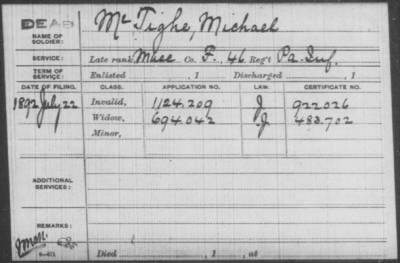 DEAD
Mc Tighe, Michael
NAME OF
SOLDIER:
SERVICE: Late rank Musc Co. F, 46 Reg't Pa. Inf.
TERM OF
SERVICE: Enlisted , 1 Discharged , 1
DATE OF FILING. CLASS. APPLICATION NO. LAW. CERTIFICATE NO.
1892 July 22 Invalid, 1124.209 J 922026
Widow, 694.042 J 483.702
Minor,
ADDITIONAL
SERVICES:
REMARKS:
Died , 1 , at